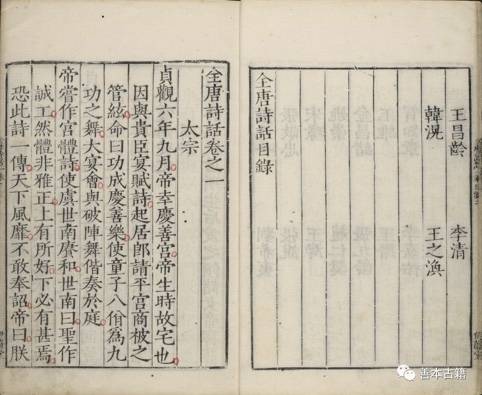 王昌齡 李清
韓滉 王之渙
全唐詩話目錄
全唐詩話卷之一
太宗
貞觀六年九月帝幸慶善宮帝生時故宅也
因與貴臣宴賦詩起居郎請平宮商被之
管絃命曰功成慶善樂使童子八佾爲九
功之舞大宴會與破陣舞偕奏於庭
帝嘗作宮體詩使虞世南賡和世南曰聖作
誠工然體非雅正上有所好下必有甚焉
恐此詩一傳天下風靡不敢奉詔帝曰朕
善本古籍